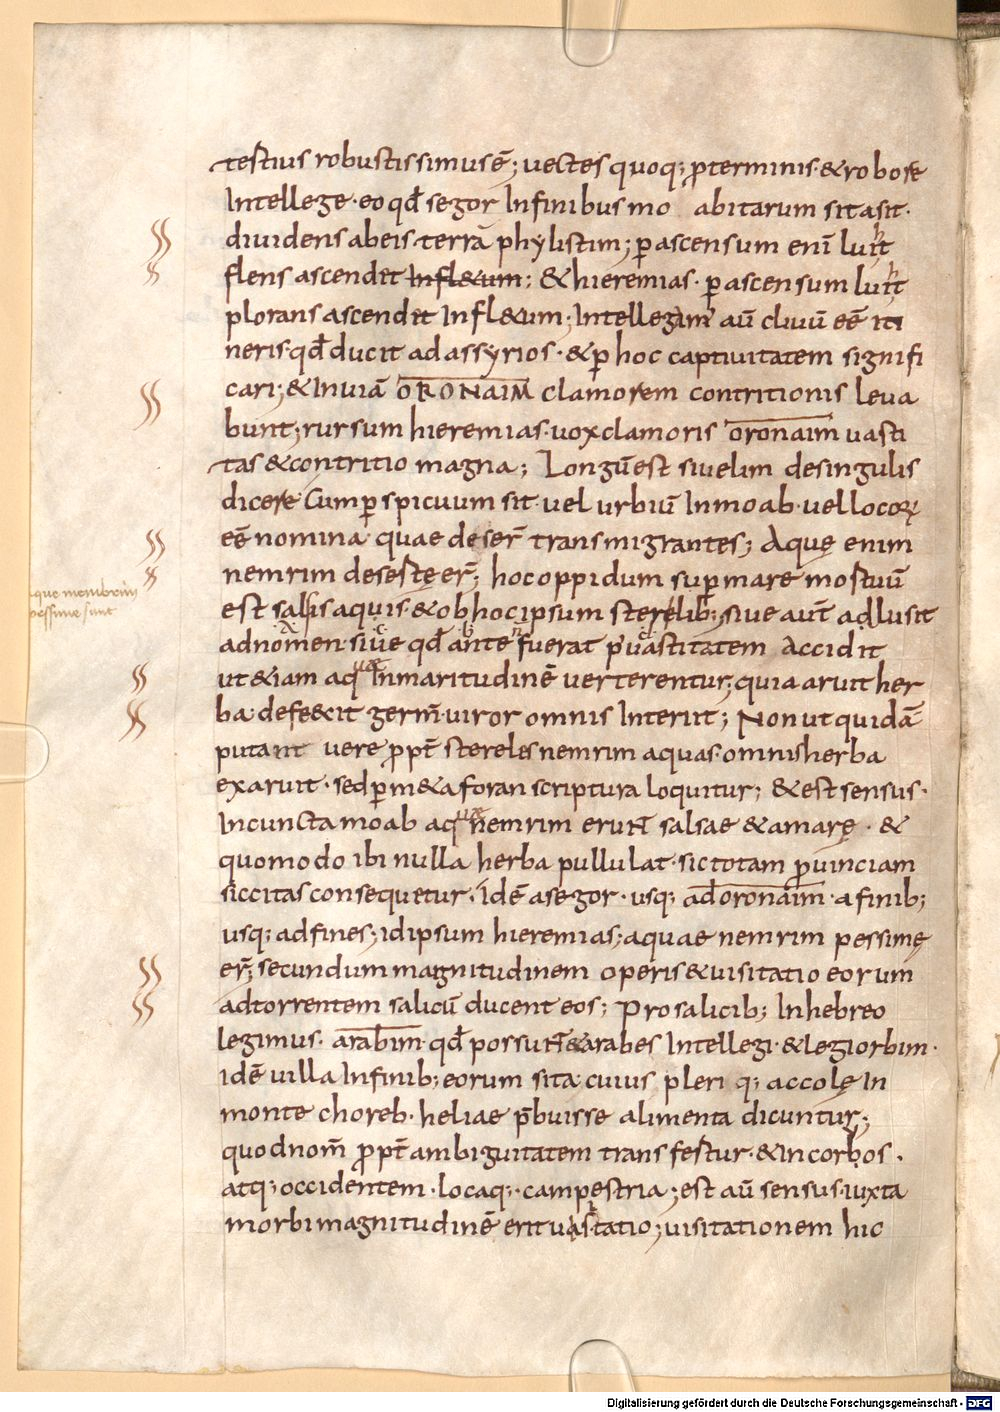 testius robustissimus ē; uectes quoq; p̱ terminis · & robore
Intellege · eo qđ segor Infinibus mo abitarum sita sit ·
diuidens ab eis terrā phylistim; ꝑ ascensum enī luit
flens ascendet Infl&um; & hieremias · ꝑ ascensum luit
plorans ascendet Infl&um; Intellegim aū cliuū eē iti
neris qđ ducit ad assyrios · & ꝑ hoc captiuitatem signifi
cari; & Inuiā ORONAIM clamorem contritionis leua
bunt; rursum hieremias · uox clamoris oronaim uasti
tas & contritio magna; Longū est si uelim de singulis
dicere Cum ꝑspicuum sit · uel urbiū Inmoab · uel locoꝝ
eē nomina quae deser̄ transmigrantes; Aquę enim
nemrim desertę er̄; hoc oppidum supmare mortuū
est salsis aquis · & ob hoc ipsum sterelib; siue aut̄ adlusit
ad nomen · siue qđ ante fuerat p uastitatem Accidit
ut &iam aquæ Inmaritudinē uerterentur; quia aruit her
ba · defecit germ̄ · uiror omnis Interiit; Non ut quidā
putant uere ꝓpt̄ stereles nemrim aquas · omnis herba
exaruit · sed ꝑ m&aforan scriptura loquitur; & est sensus ·
Incuncta moab aquæ nemrim erunt salsae & amarę · &
quomodo ibi nulla herba pullulat · sic totam ꝓuinciam
siccitas consequetur · idē a segor · usq; ad oronaim · a finib;
usq; ad fines; id ipsum hieremias; aquae nemrim pessimę
er̄; secundum magnitudinem operis & uisitatio eorum
ad torrentem salicū ducent eos; Pro salicib; Inhebreo
legimus · arabim · qđ possunt & arabes Intellegi · & legi orbim ·
idē uilla Infinib; eorum sita · cuius pleri q; accolę In
monte choreb · heliae p̄buisse alimenta dicuntur;
quod nom̄ ꝓpt̄ ambiguitatem transfertur · & Incorbos ·
atq; occidentem · locaq; · campestria; est aū sensus · iuxta
morbi magnitudinē erit uastatio; uisitationem hic
aque membrim
pessime sunt
Digitalisierung gefördert durch die Deutsche Forschungsgemeinschaft - DFG